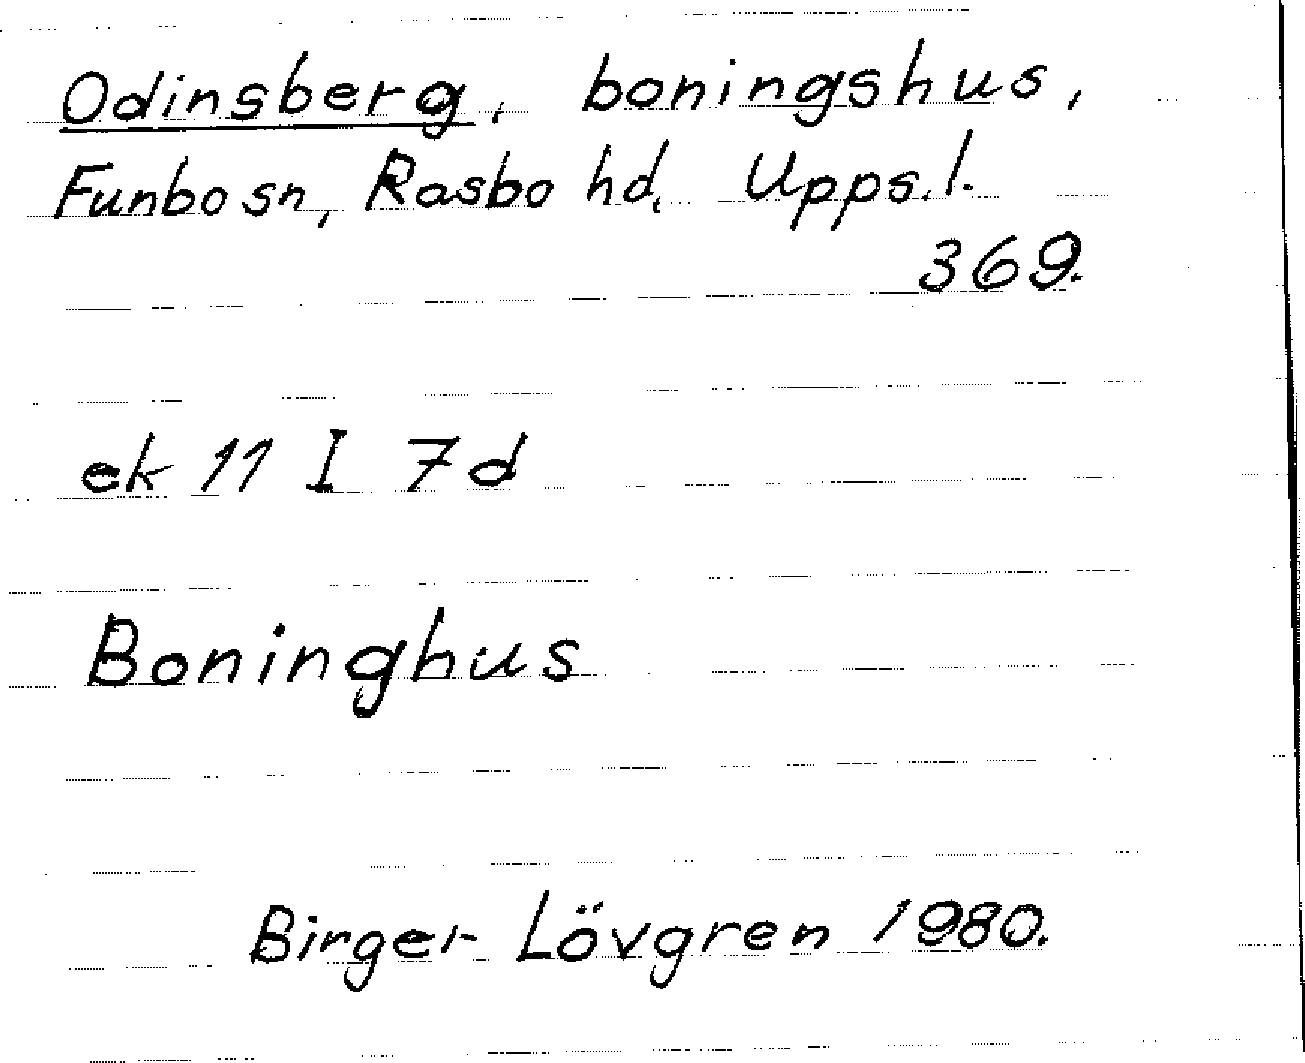 Odinsberg, boningshus,
Funbo sn, Rasbo hd, Upps.l.
369.
ek 11 I 7d
Boninghus
Birger Lövgren 1980.